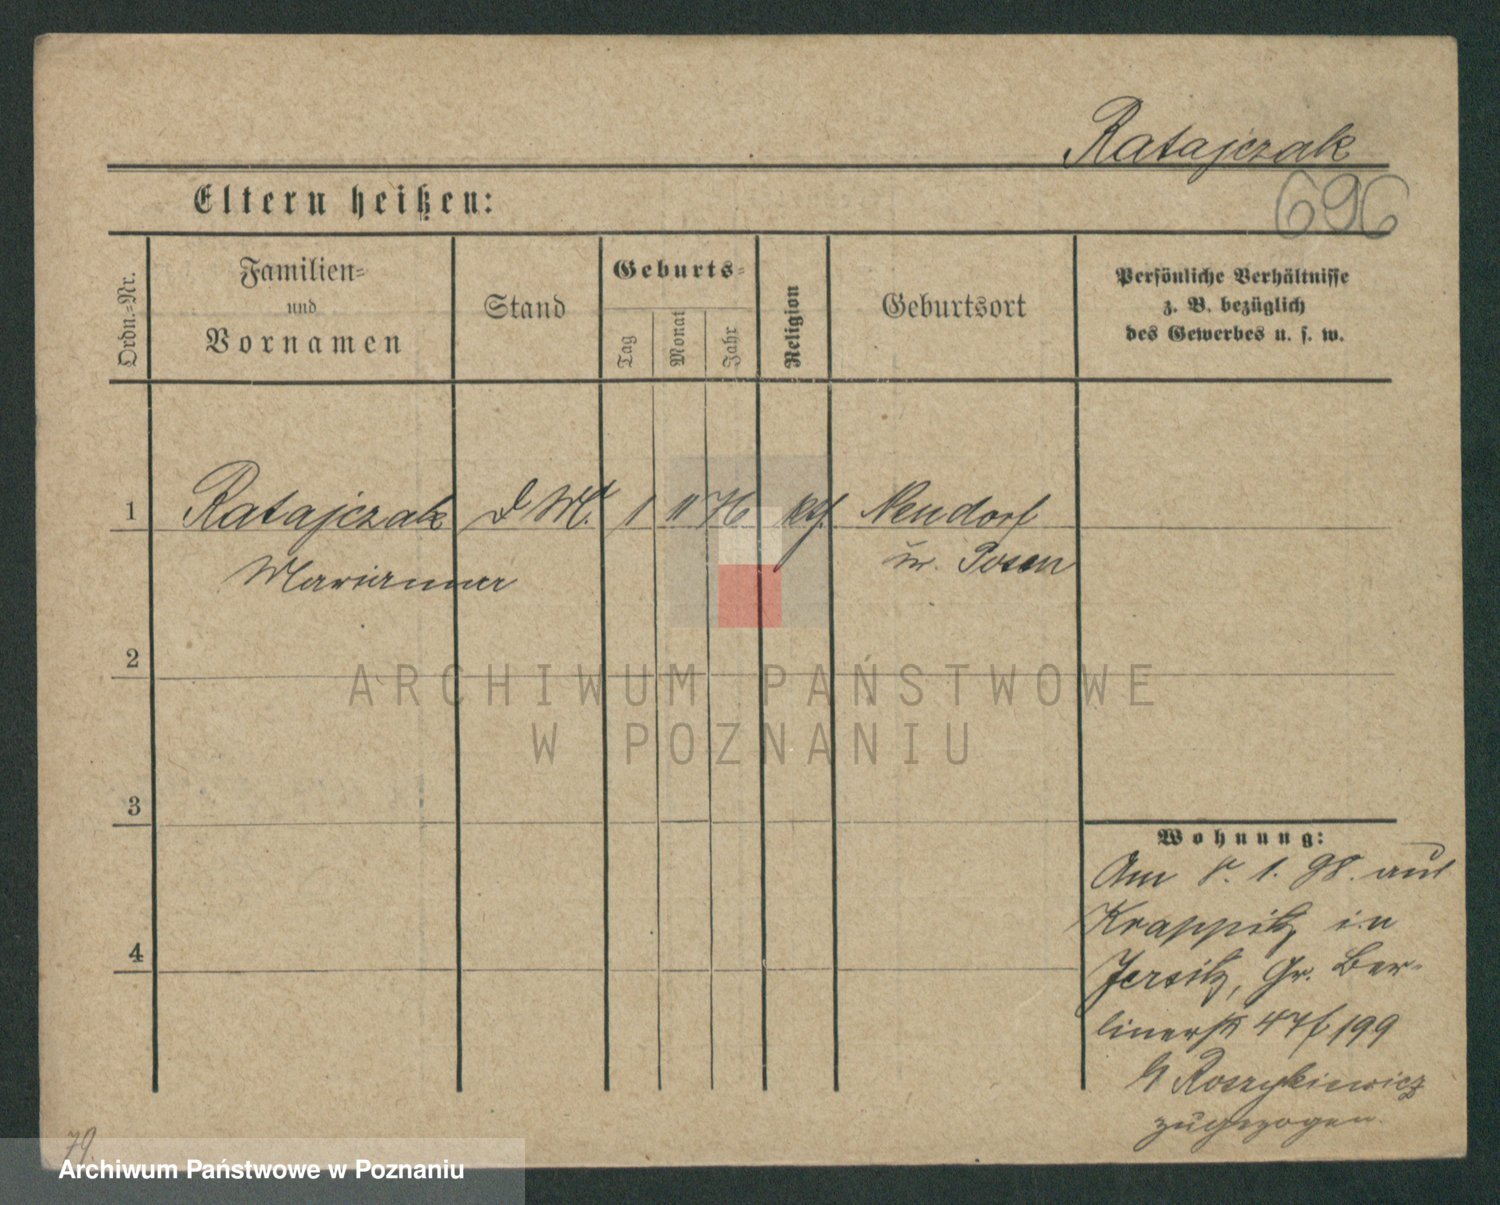 Ratajczak
Eltern heißen:
696
Ordn.=Nr.
Familien=
und
Vornamen
Stand
Geburts=
Tag
Monat
Jahr
Religion
Geburtsort
Persönliche Verhältnisse
z. B. bezüglich
des Gewerbes u. s. w.
1 Ratajczak d M. 1 11 76 kg. Neudorf
Marianna
Kr. Posen
2
ARCHIWUM PAŃSTWOWE
W POZNANIU
3
Wohnung:
Am 8. 1. 98. aus
Krappitz in
4
Jersitz, Gr. Ber-
linerstr 47 199
Roszykiewicz
zugezogen.
79.
Archiwum Państwowe w Poznaniu